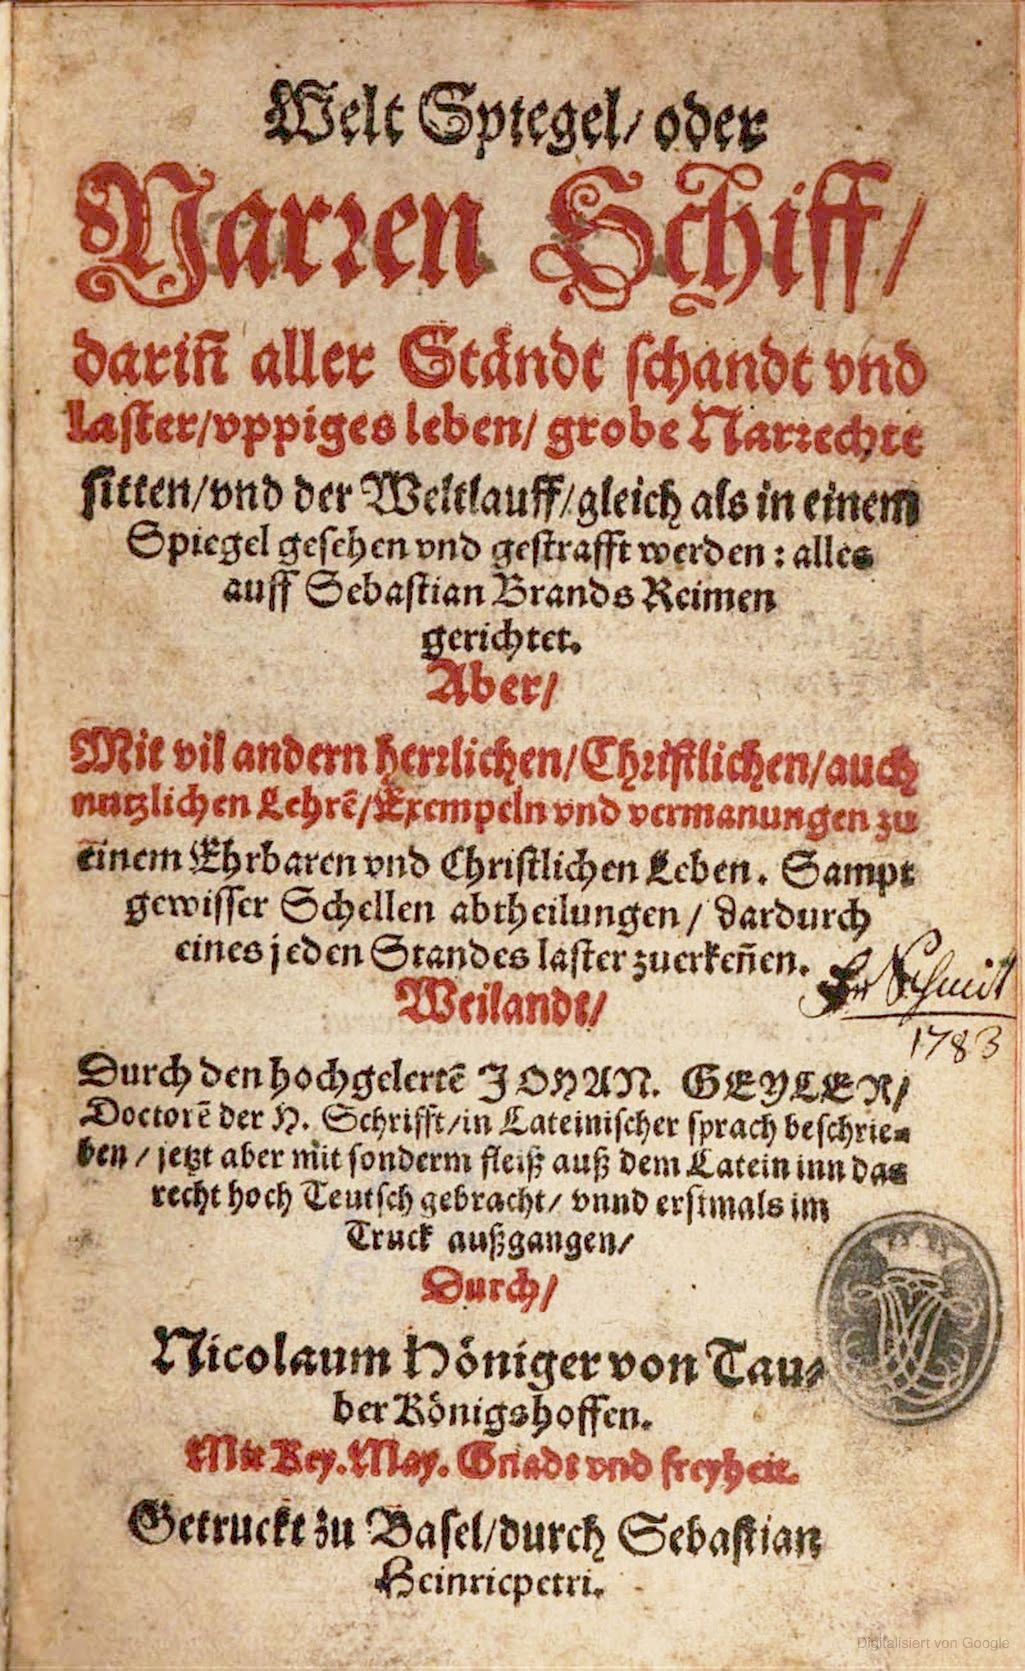 Welt Spiegel/ oder
Narren Schiff/
dariñ aller Ständt schandt vnd
laster/vppiges leben/ grobe Narrechte
sitten/vnd der Weltlauff/gleich als in einem
Spiegel gesehen vnd gestrafft werden : alles
auff Sebastian Brands Reimen
gerichtet.
Aber/
Mit vil andern herrlichen/Christlichen/auch
nutzlichen Lehrẽ/Exempeln vnd vermanungen zu
einem Ehrbaren vnd Christlichen Leben. Sampt
gewisser Schellen abtheilungen / dardurch
eines jeden Standes laster zuerkeñen.
Fr Schmit
1783
Weilandt/
Durch den hochgelertẽ JOHAN. GEYLER/
Doctorẽ der H. Schrifft/in Lateinischer sprach beschrie=
ben / jetzt aber mit sonderm fleiß auß dem Latein inn das
recht hoch Teutsch gebracht/ vnnd erstmals im
Truck außgangen/
Durch/
Nicolaum Höniger von Tau=
ber Königshoffen.
Mit Key. May. Gnadt vnd freyheit.
Getruckt zu Basel/durch Sebastian
Heinricpetri.
Digitalisiert von Google